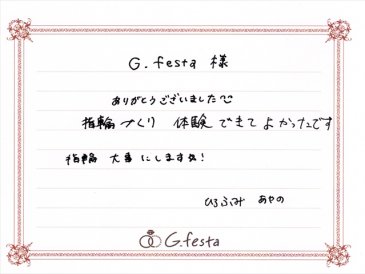 G.festa 様
ありがとうございました
指輪づくり 体験できてよかったです
指輪 大事にしますね!
ひろふみ あやの
G.festa